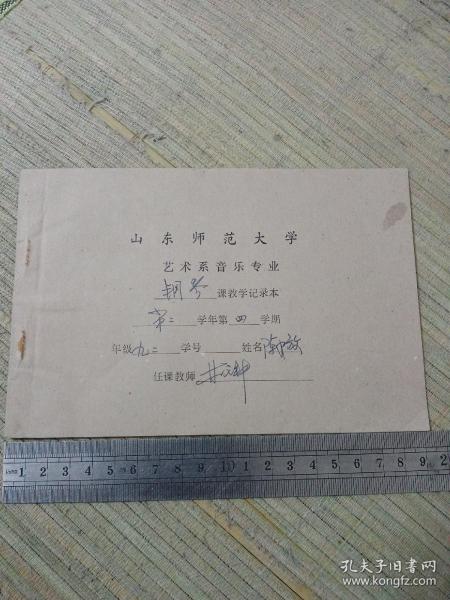 山东师范大学
艺术系音乐专业
钢琴课教学记录本
第二学年第四学期
年级九二学号 姓名
任课教师
1 2 3 4 5 6 7 8 9 10 1 2 3 4 5 6 7 8 9 2
孔夫子旧书网
www.kongfz.com